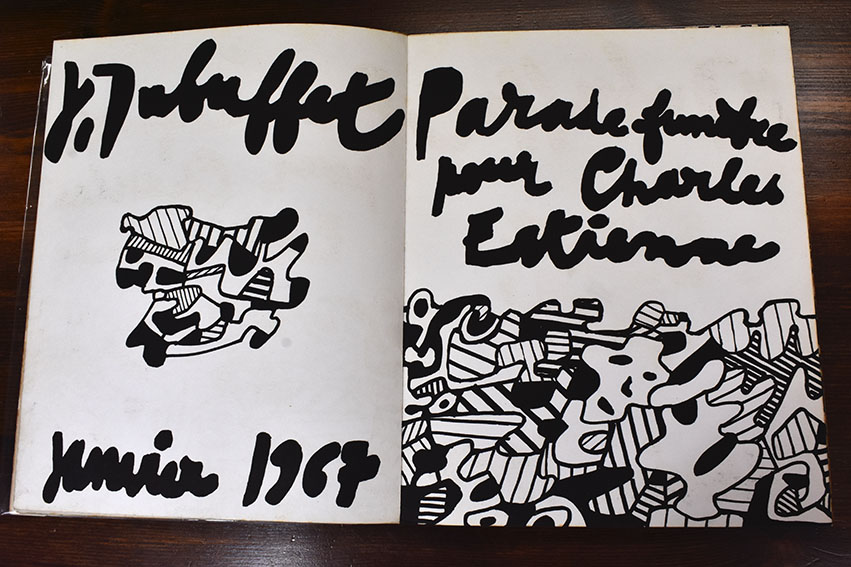 J. Dubuffet
janvier 1967
Parade funèbre
pour Charles
Estienne